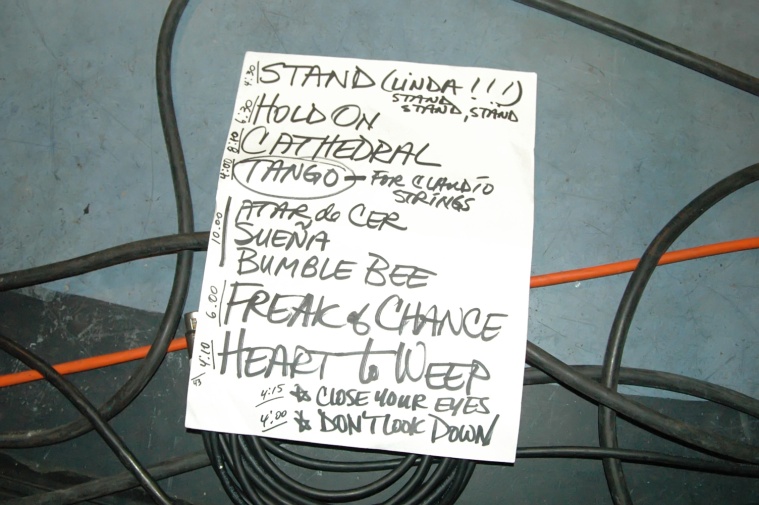 4:30 STAND (LINDA !!!)
STAND
STAND, STAND
6:30 HOLD ON
8:10 CATHEDRAL
4:00 TANGO - FOR CLAUDIO
STRINGS
ATAR do CER
10.00 SUEÑA
BUMBLE BEE
6.00 FREAK of CHANCE
4:10 HEART to WEEP
4:15 * CLOSE YOUR EYES
4:00 * DON'T LOOK DOWN